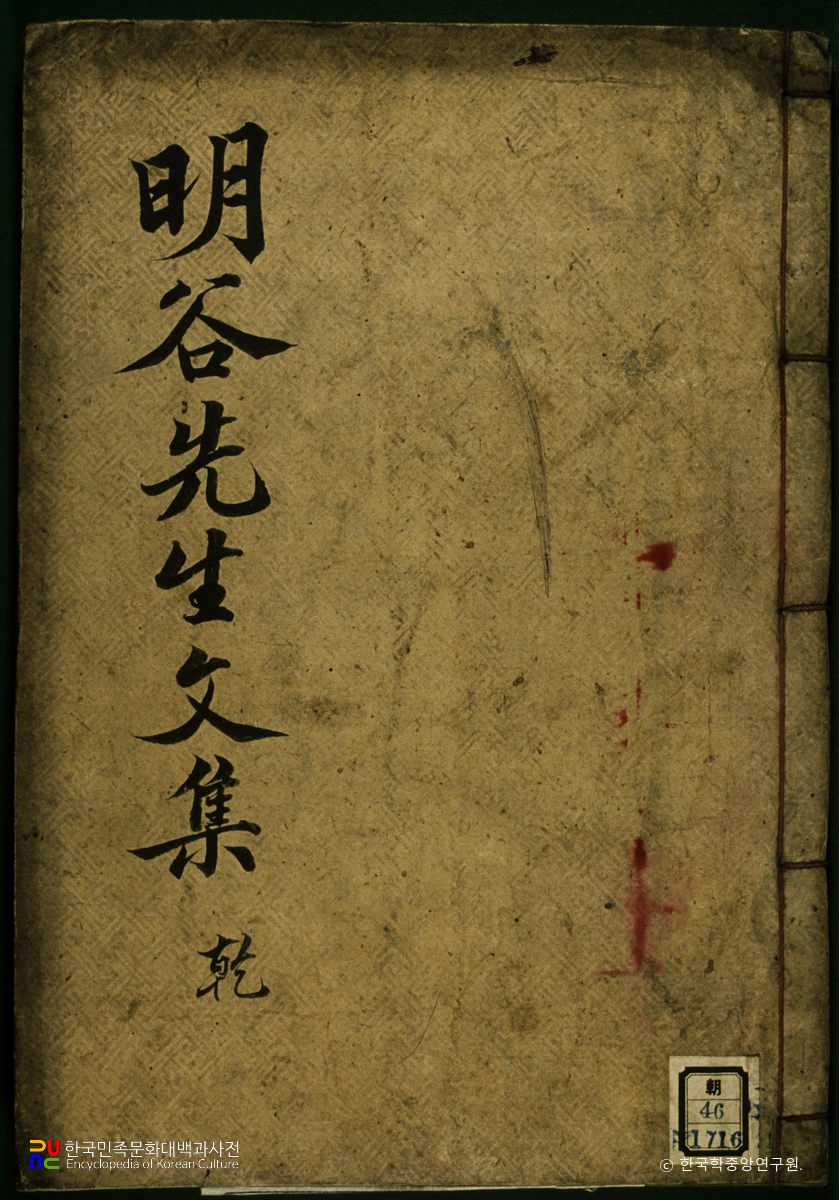 明谷先生文集 乾
朝
46
1716
한국민족문화대백과사전
Encyclopedia of Korean Culture
© 한국학중앙연구원.